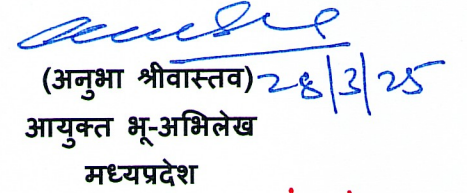 (अनुभा श्रीवास्तव) 28/3/25
आयुक्त भू-अभिलेख
मध्यप्रदेश